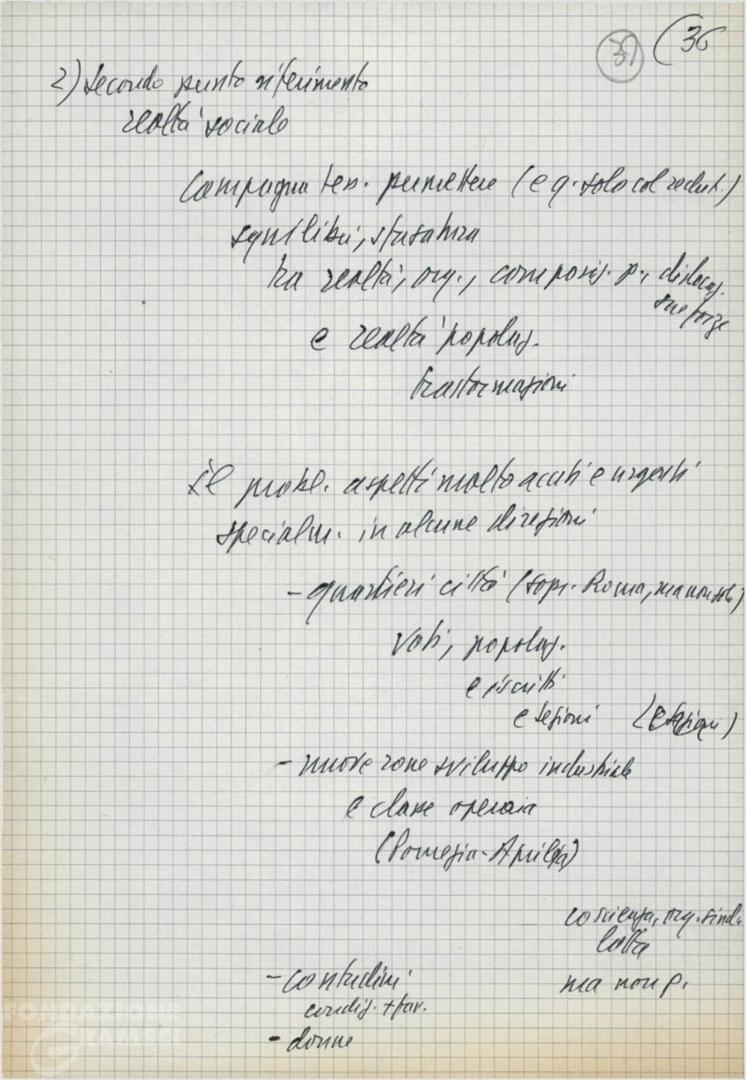 36
2) Secondo punto riferimento
realtà sociale
Campagna tess. permettere (e q. solo col reclut.)
squilibri, sfasatura
tra realtà, org., composiz. p., dislocaz.
sue forze
e realtà popolaz.
trasformazioni
il probl. aspetti molto acuti e urgenti
specialm. in alcune direzioni
- quartieri città (sopr. Roma, ma non solo)
Voti, popolaz.
e iscritti
e sezioni (e sezioni)
- nuove zone sviluppo industriale
e classe operaia
(Pomezia-Aprilia)
coscienza, org. sind.
lotta
ma non p.
- contadini
condiz. + fav.
- donne
FONDAZIONE
GRAMSCI